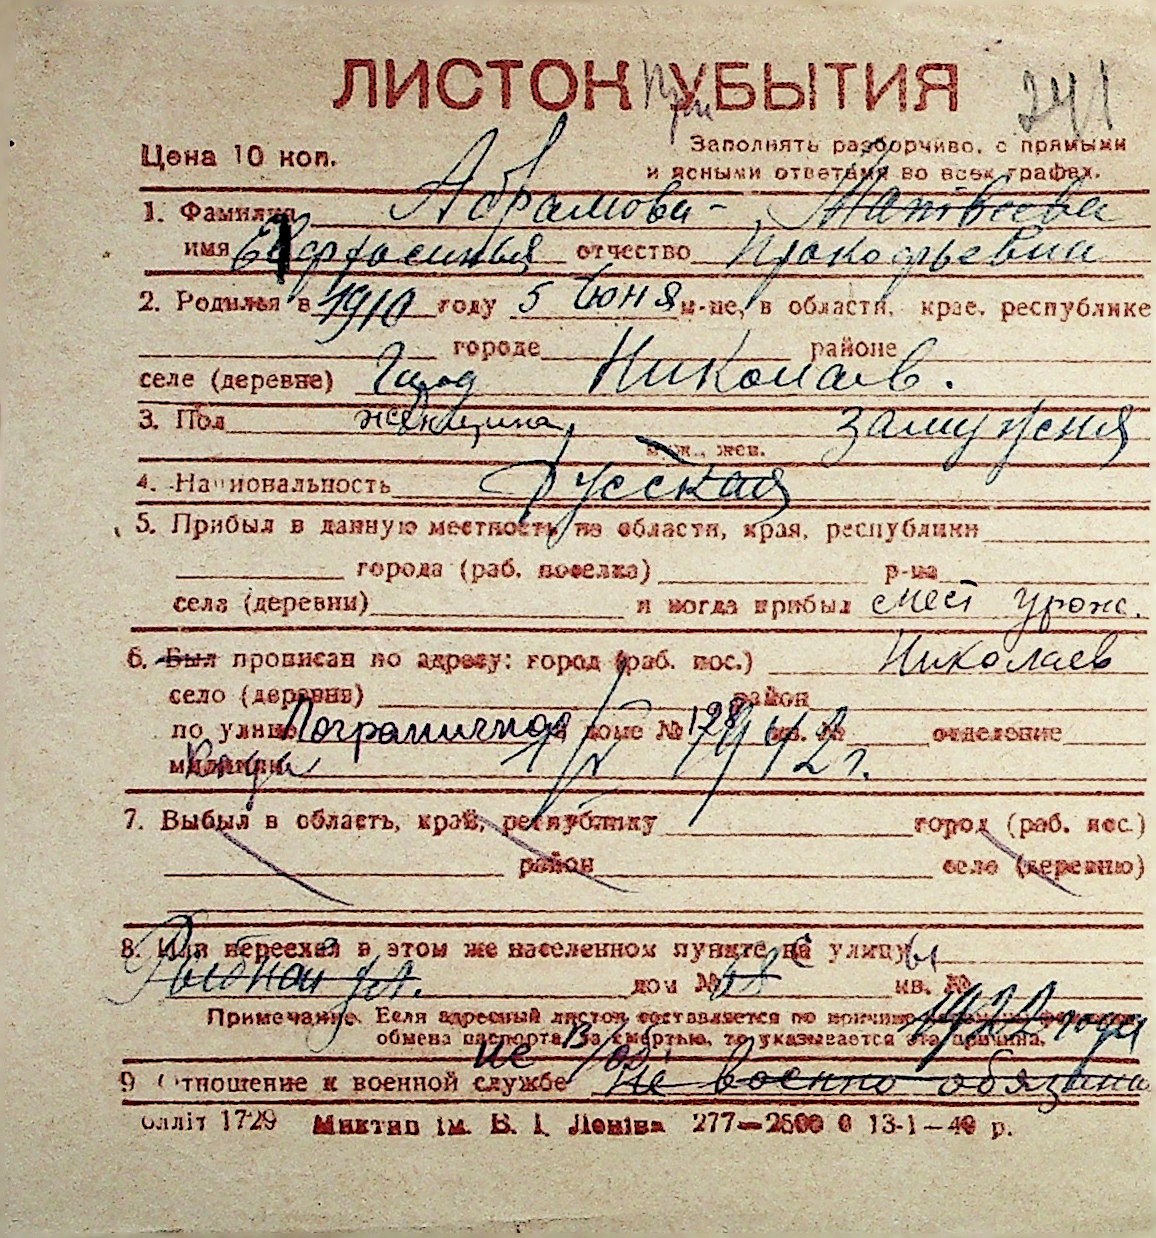 ЛИСТОК При УБЫТИЯ 241
Цена 10 коп.
Заполнять разборчиво, с прямыми
и ясными ответами во всех графах.
1. Фамилия Абрамова - Матвеева
имя Ефросинья отчество Прокофьевна
2. Родился в 1910 году 5 Июня м-це, в области, крае, республике
городе районе
селе (деревне) Город Николаев.
3. Пол женщина, замужня
муж., жен.
4. Национальность Русская
5. Прибыл в данную местность из области, края, республики
города (раб. поселка) р-на
села (деревни) и когда прибыл мест урож.
6. Был прописан по адресу: город (раб. пос.) Николаев
село (деревня) район
по улице Пограничная доме № 128 кв. № отделение
милиции 1942 г.
7. Выбыл в область, край, республику город (раб. пос.)
район село (деревню)
8. Или переехал в этом же населенном пункте на с улицы
Рыбной ул. дом № 68 кв. №
Примечание. Если адресный листок составляется по причине
обмена паспорта, за смертью, то указывается эта причина.
1922 года
не в/об.
9 Отношение к военной службе не военно обязана
олліт 1729 Миктип ім. В. І. Леніна 277—2500 0 13-1—40 р.